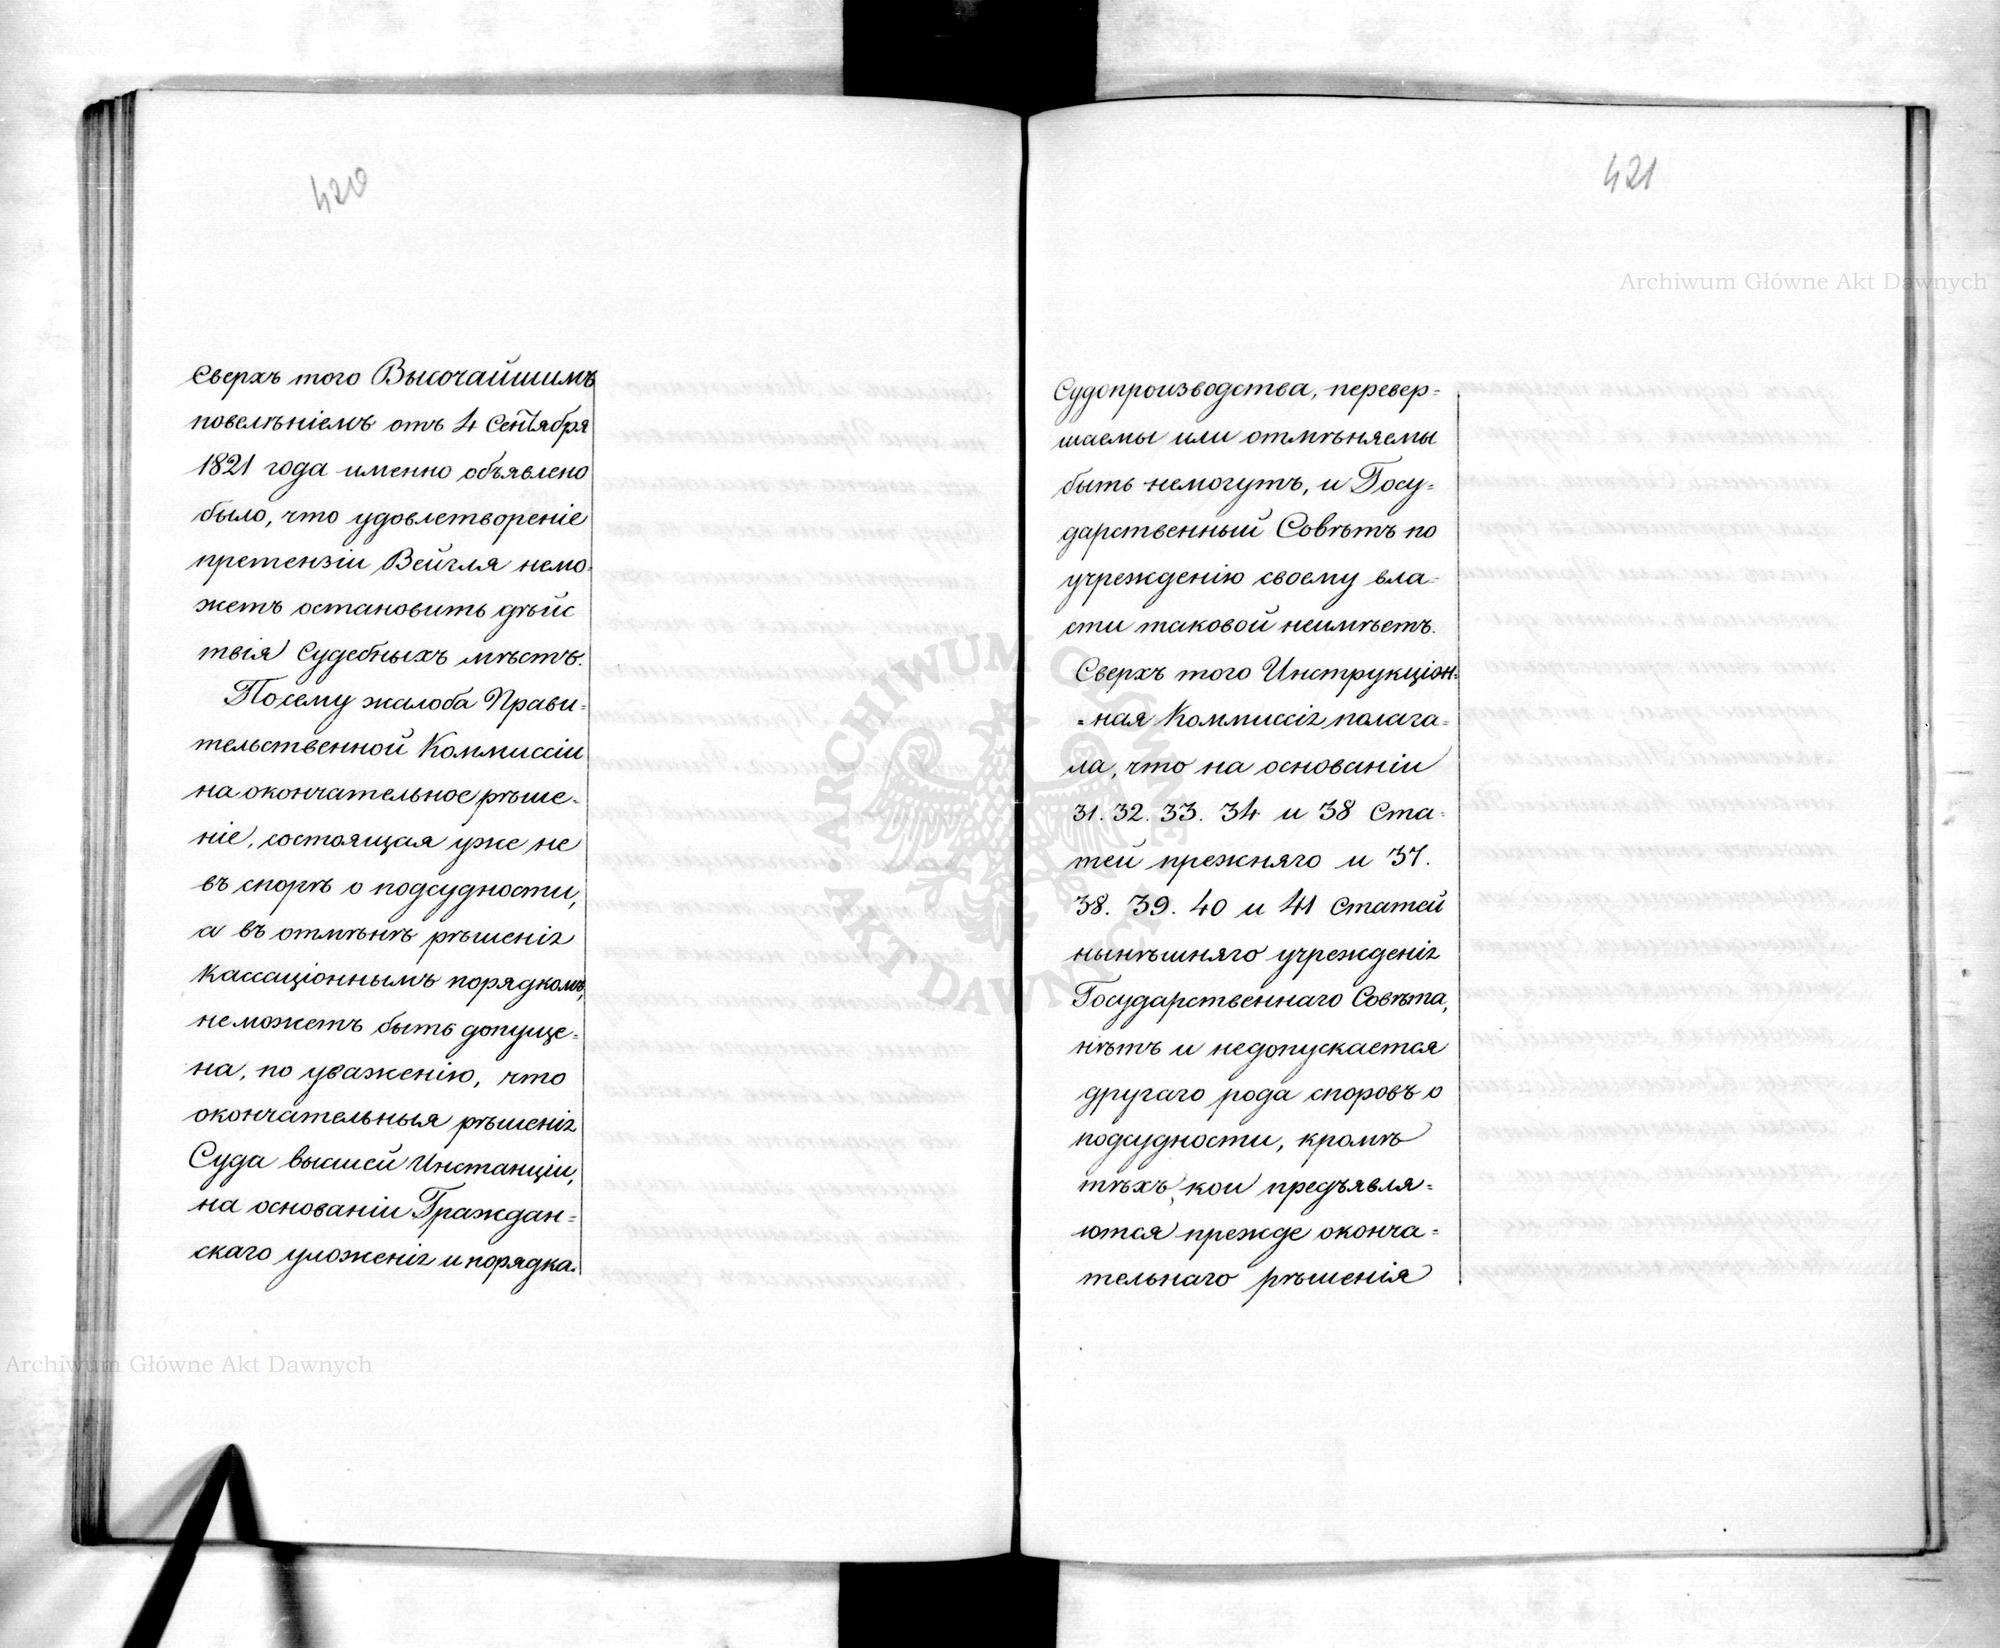 420
Сверхъ того Высочайшимъ
повелѣніемъ отъ 4 Сентября
1821 года именно объявлено
было, что удовлетвореніе
претензіи Вейгля немо-
жетъ остановить дѣйс
твія Судебныхъ мѣстъ.
Посему жалоба Прави-
тельственной Коммиссіи
на окончательное рѣше-
ніе, состоящая уже не
въ спорѣ о подсудности,
а въ отмѣнѣ рѣшенія
Кассаціоннымъ порядкомъ,
неможетъ быть допуще-
на, по уваженію, что
окончательныя рѣшенія
Суда высшей Инстанціи,
на основаніи Граждан-
скаго уложенія и порядка
421
Судопроизводства, перевер-
шаемы или отмѣняемы
быть немогутъ, и Госу-
дарственный Совѣтъ по
учрежденію своему вла-
сти таковой неимѣетъ.
Сверхъ того Инструкціон-
-ная Коммиссія полага-
ла, что на основаніи
31. 32. 33. 34 и 38 Ста-
тей прежняго и 37.
38. 39. 40 и 41 Статей
нынѣшняго учрежденія
Государственнаго Совѣта,
нѣтъ и недопускается
другаго рода споровъ о
подсудности, кромѣ
тѣхъ, кои предъявля-
ются прежде оконча-
тельнаго рѣшенія
Archiwum Główne Akt Dawnych
Archiwum Główne Akt Dawnych
ARCHIWUM GŁÓWNE AKT DAWNYCH